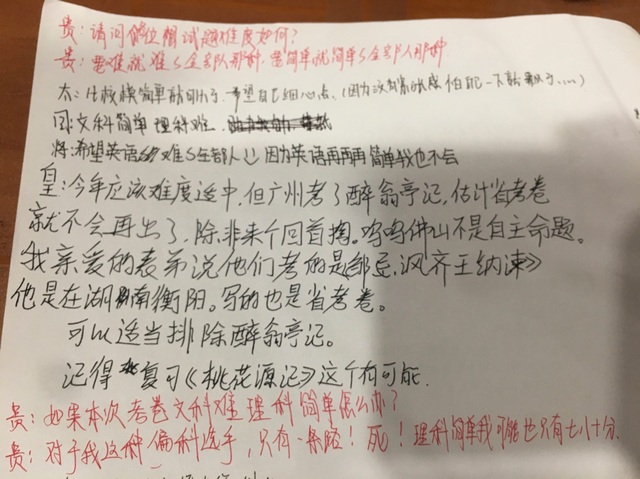 贵：请问各位觉试题难度如何？
贵：要难就难死全部人那种，要简单就简单死全部人那种
太：比较模简单就可以了，希望自己细心点。（因为没有紧张感怕自己一下就飘了……）
同：文科简单 理科难。
将：希望英语难死全部人 因为英语再再再简单我也不会
皇：今年应该难度适中，但广州考了醉翁亭记，估计省考卷
就不会再出了，除非来个回首掏。呜呜佛山不是自主命题。
我亲爱的表弟说他们考的是《邹忌讽齐王纳谏》
他是在湖南衡阳。写的也是省考卷。
可以适当排除醉翁亭记。
记得复习《桃花源记》这个有可能.
贵：如果本次考卷文科难 理科简单怎么办？
贵：对于我这种偏科选手，只有一条路！死！理科简单我可能也只有七八十分.